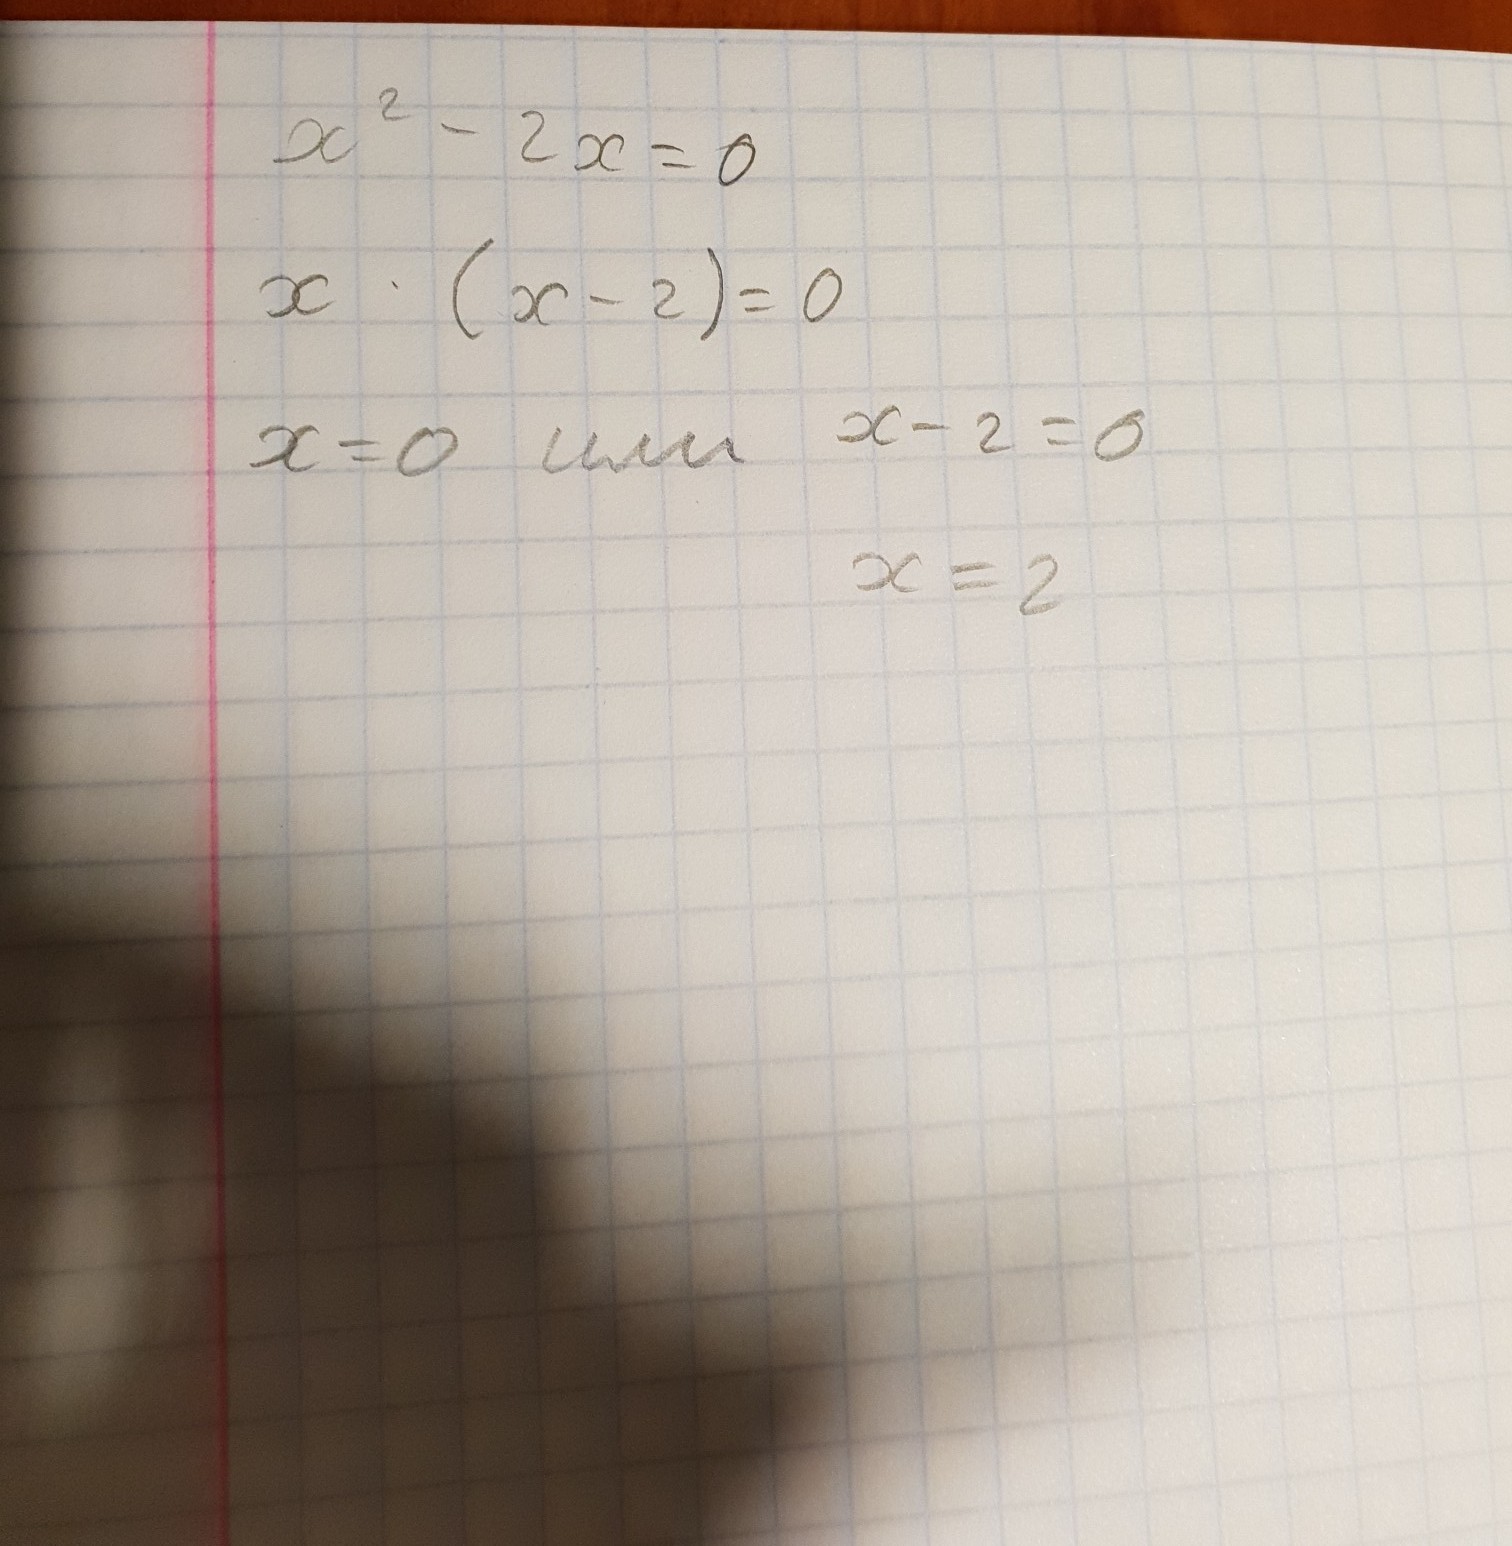 x² - 2x = 0
x · (x - 2) = 0
x = 0 или x - 2 = 0
x = 2